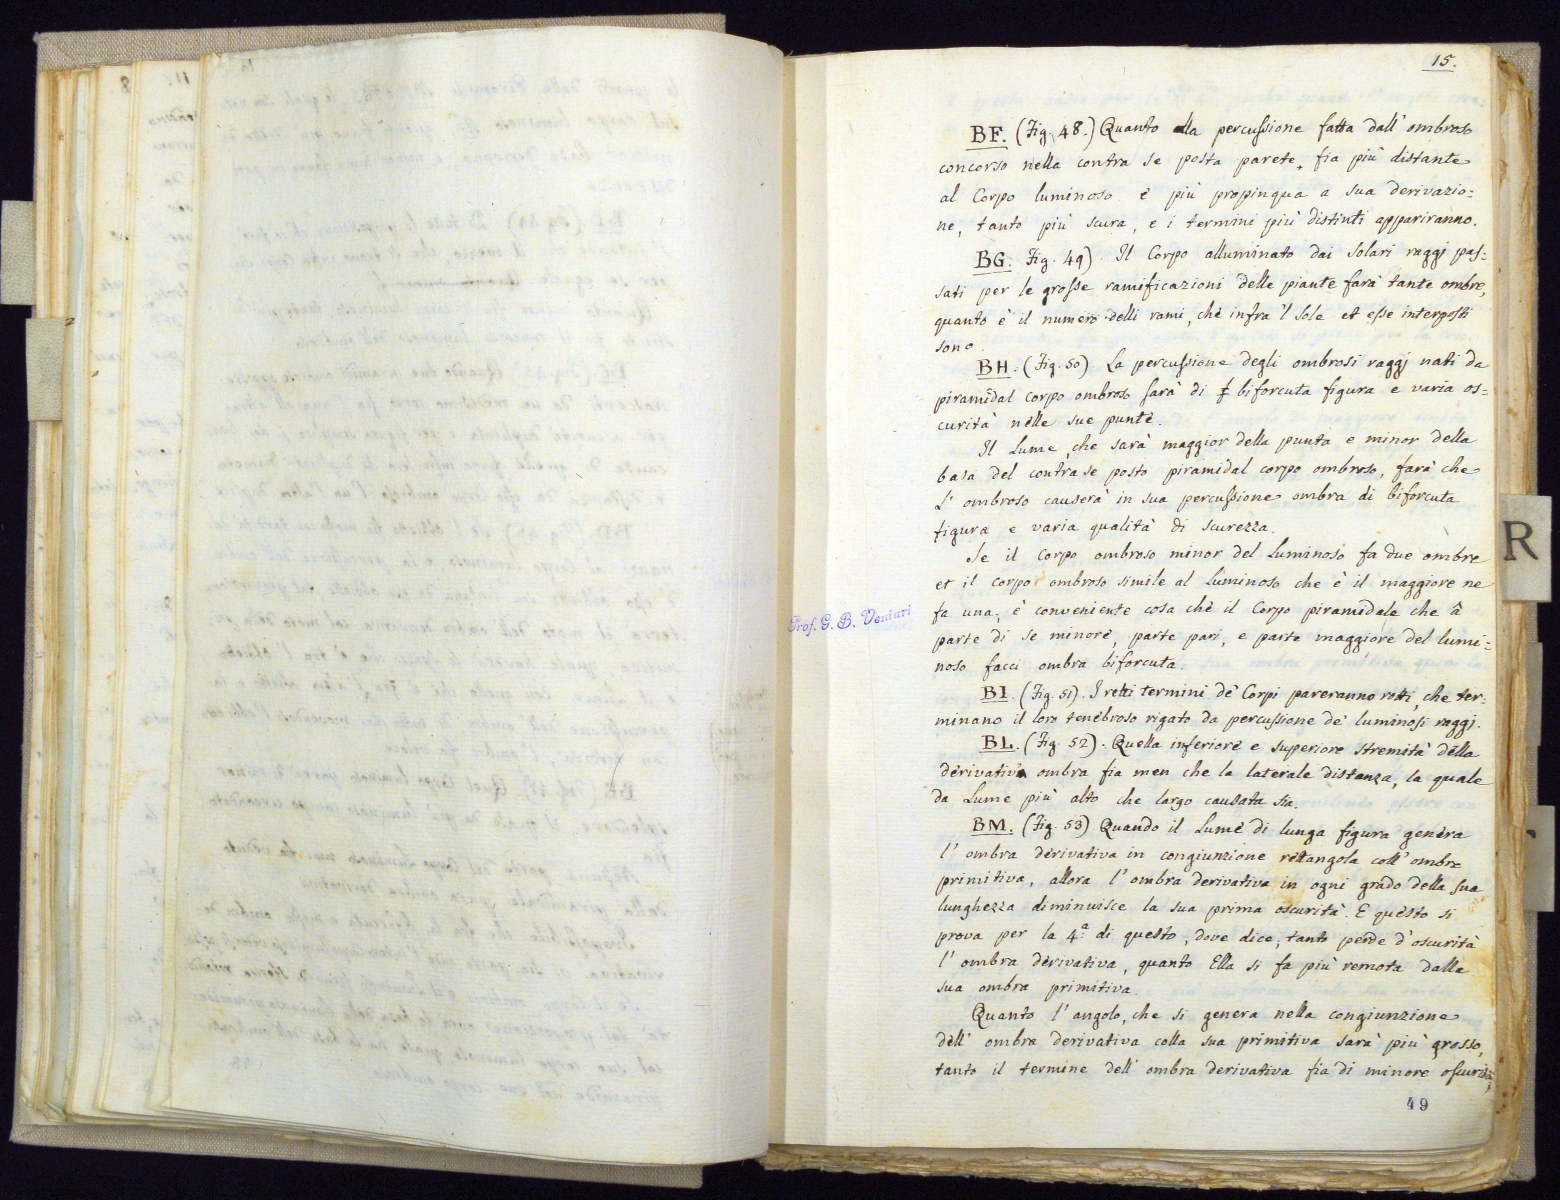 15.
BF. (Fig. 48.) Quanto alla percussione fatta dall' ombroso
concorso nella contra se posta parete, fia più distante
al Corpo luminoso e più propinqua a sua derivazio=
ne, tanto più scura, e i termini più distinti appariranno.
BG. Fig. 49). Il Corpo alluminato dai solari raggj pas=
sati per le grosse ramificazioni delle piante farà tante ombre,
quanto è il numero delli rami, chè infra 'l Sole et esse interposti
sono.
BH. (Fig. 50) La percussione degli ombrosi raggj nati da
piramidal corpo ombroso sarà di biforcuta figura e varia os=
curità nelle sue punte.
Il Lume, che sarà maggior della punta e minor della
basa del contra se posto piramidal corpo ombroso, farà che
L' ombroso causerà in sua percussione ombra di biforcuta
figura e varia qualità di scurezza.
Se il Corpo ombroso minor del Luminoso fa due ombre
et il corpo ombroso simile al Luminoso che è il maggiore ne
fa una, è conveniente cosa chè il Corpo piramidale che â
parte di se minore, parte pari, e parte maggiore del lumi=
noso facci ombra biforcuta.
BI. (Fig. 51). I retti termini de' Corpi pareranno rotti, che ter=
minano il loro tenebroso rigato da percussione de' luminosi raggj.
BL. (Fig. 52). Quella inferiore e superiore stremità della
derivativa ombra fia men che la laterale distanza, la quale
da Lume più alto che largo causata sia.
BM. (Fig. 53) Quando il Lume di lunga figura genera
l' ombra derivativa in congiunzione rettangola coll' ombra
primitiva, allora l' ombra derivativa in ogni grado della sua
lunghezza diminuisce la sua prima oscurità. E questo si
prova per la 4.ª di questo, dove dice, tanto perde d'oscurità
l' ombra derivativa, quanto Ella si fa più remota dalla
sua ombra primitiva.
Quanto l' angolo, che si genera nella congiunzione
dell' ombra derivativa colla sua primitiva sarà più grosso,
tanto il termine dell' ombra derivativa fia di minore oscurità;
49
Prof. G. B. Venturi
R